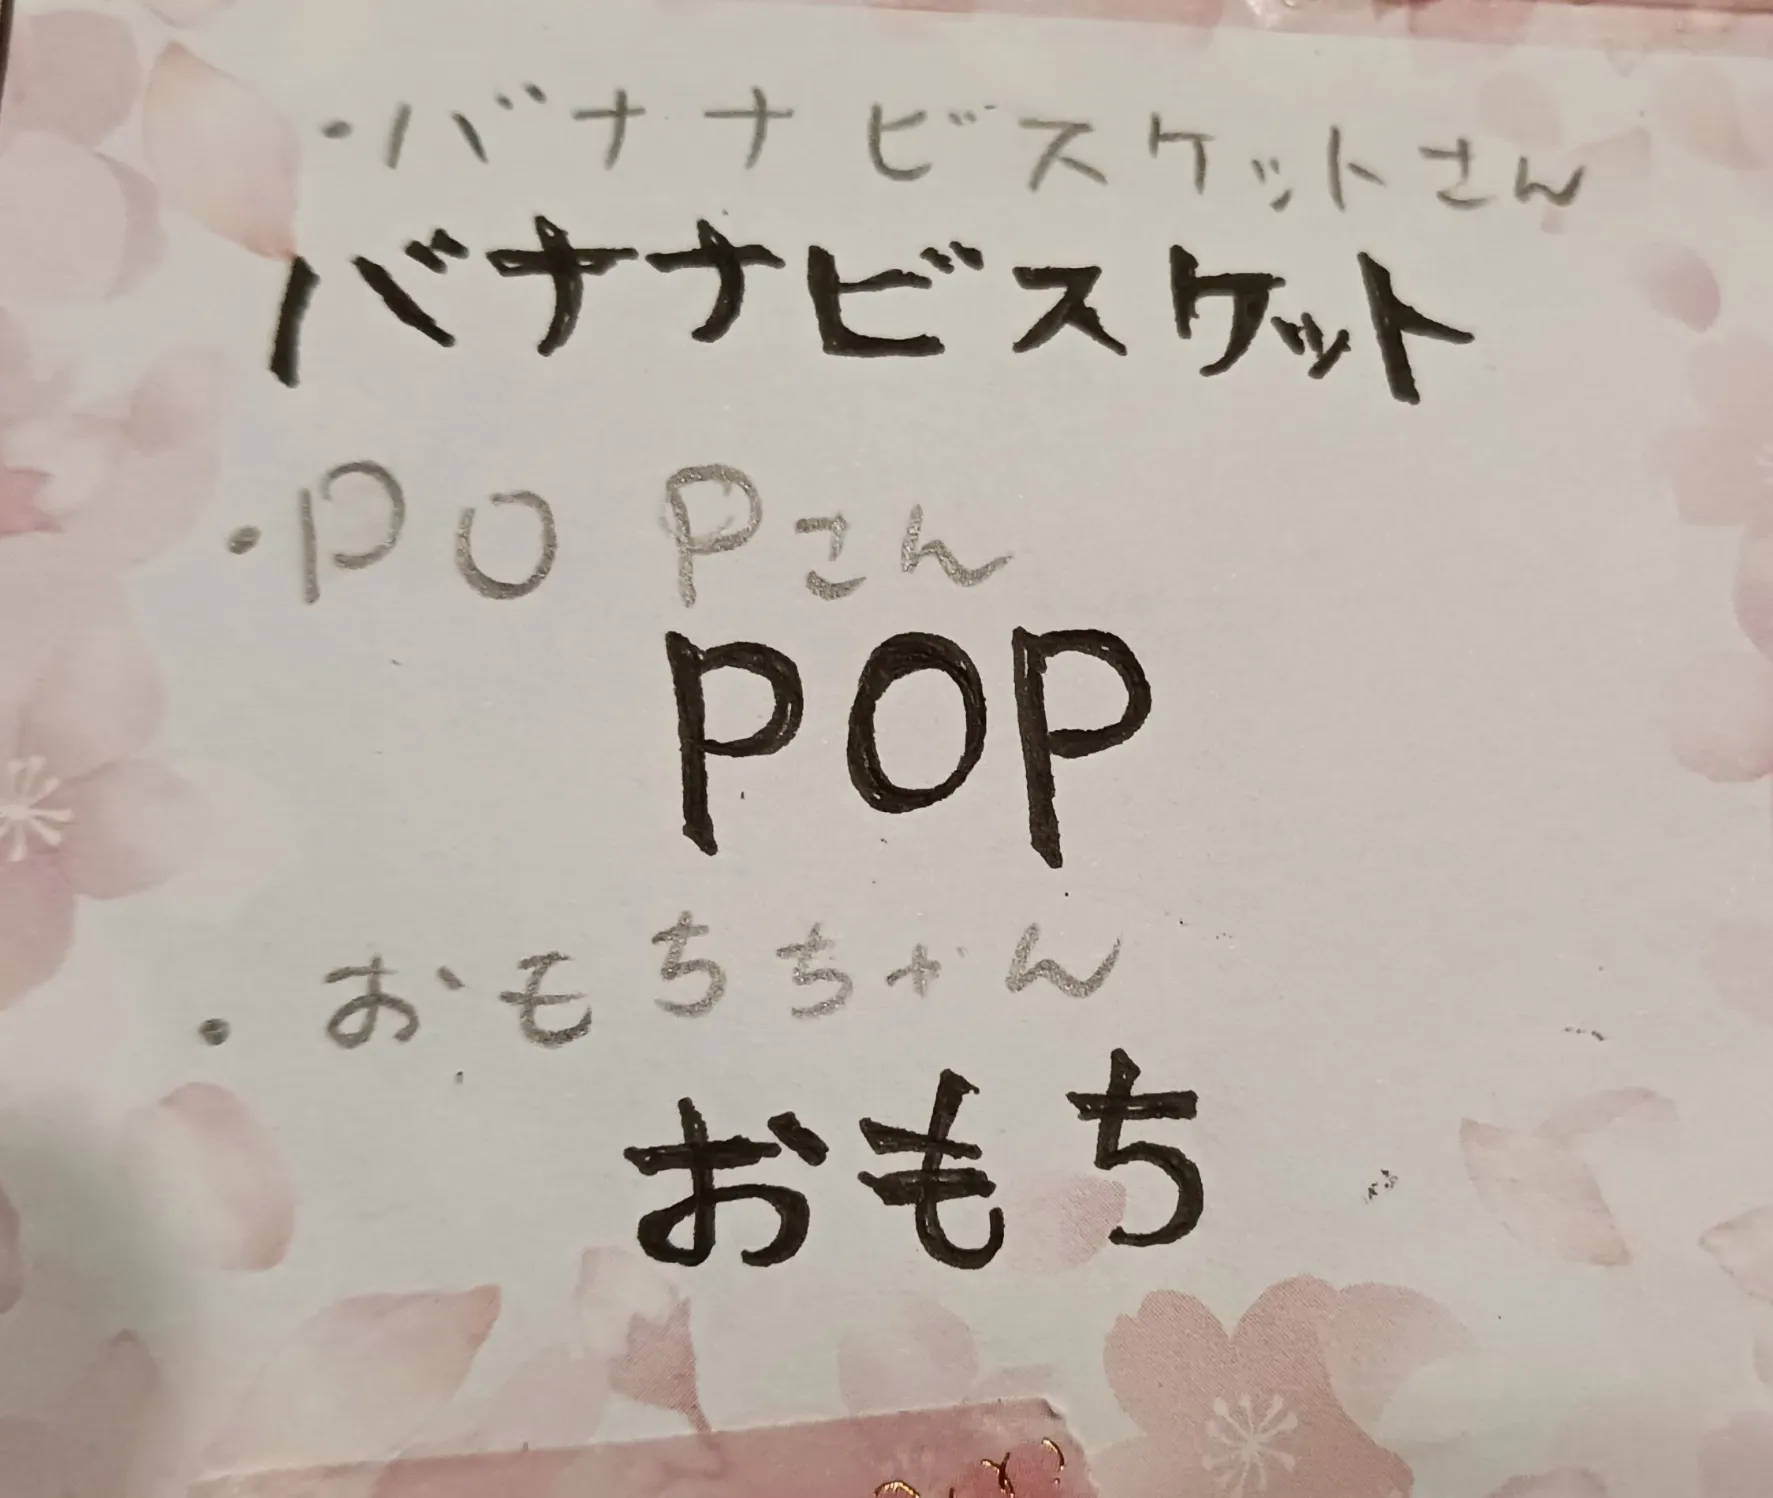 ・バナナビスケットさん
バナナビスケット
・POPさん
POP
・おもちちゃん
おもち